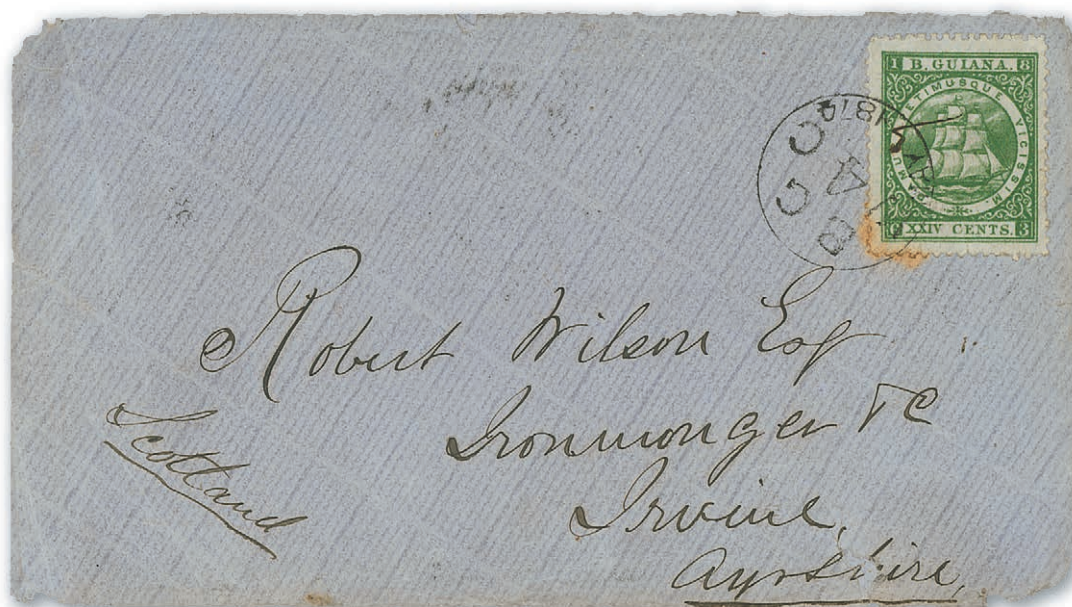 1 B. GUIANA. 8
DAMUS PETIMUSQUE VICISSIM.
6 XXIV CENTS. 3
1874
Robert Wilson Esq
Ironmonger &C
Irvine,
Ayrshire,
Scotland